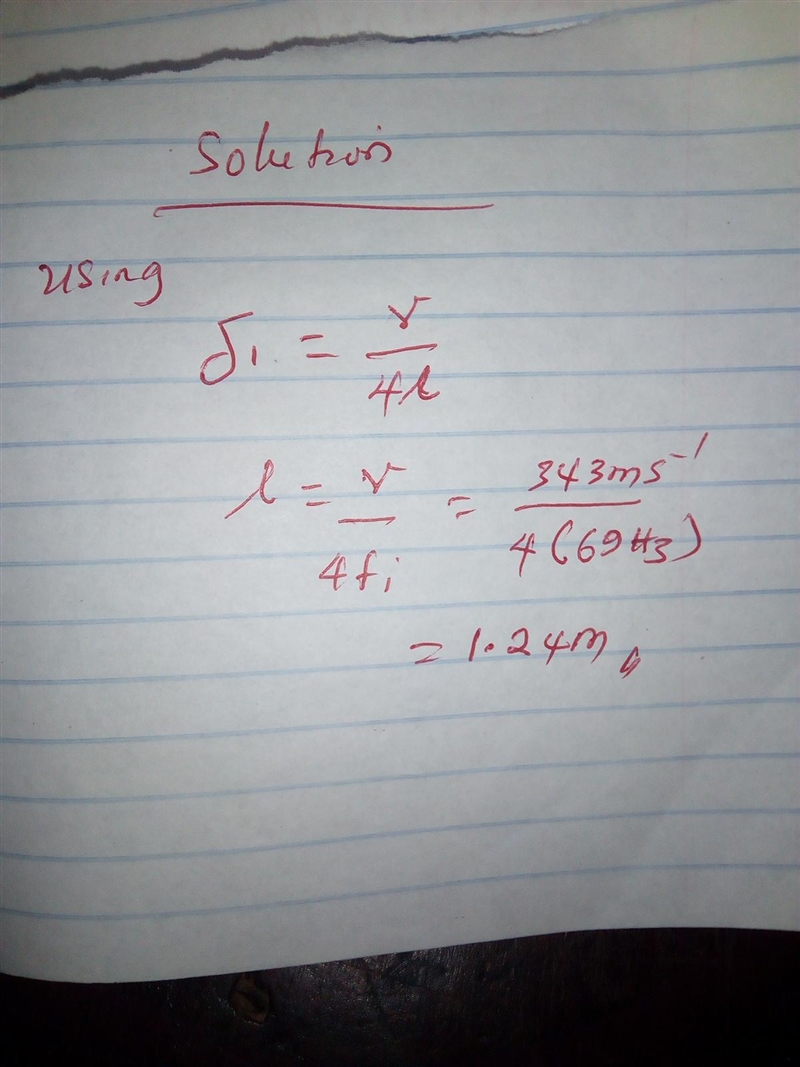 Solution
using
f₁ = v / 4l
l = v / 4f₁ = 343ms⁻¹ / 4(69Hz)
= 1.24m